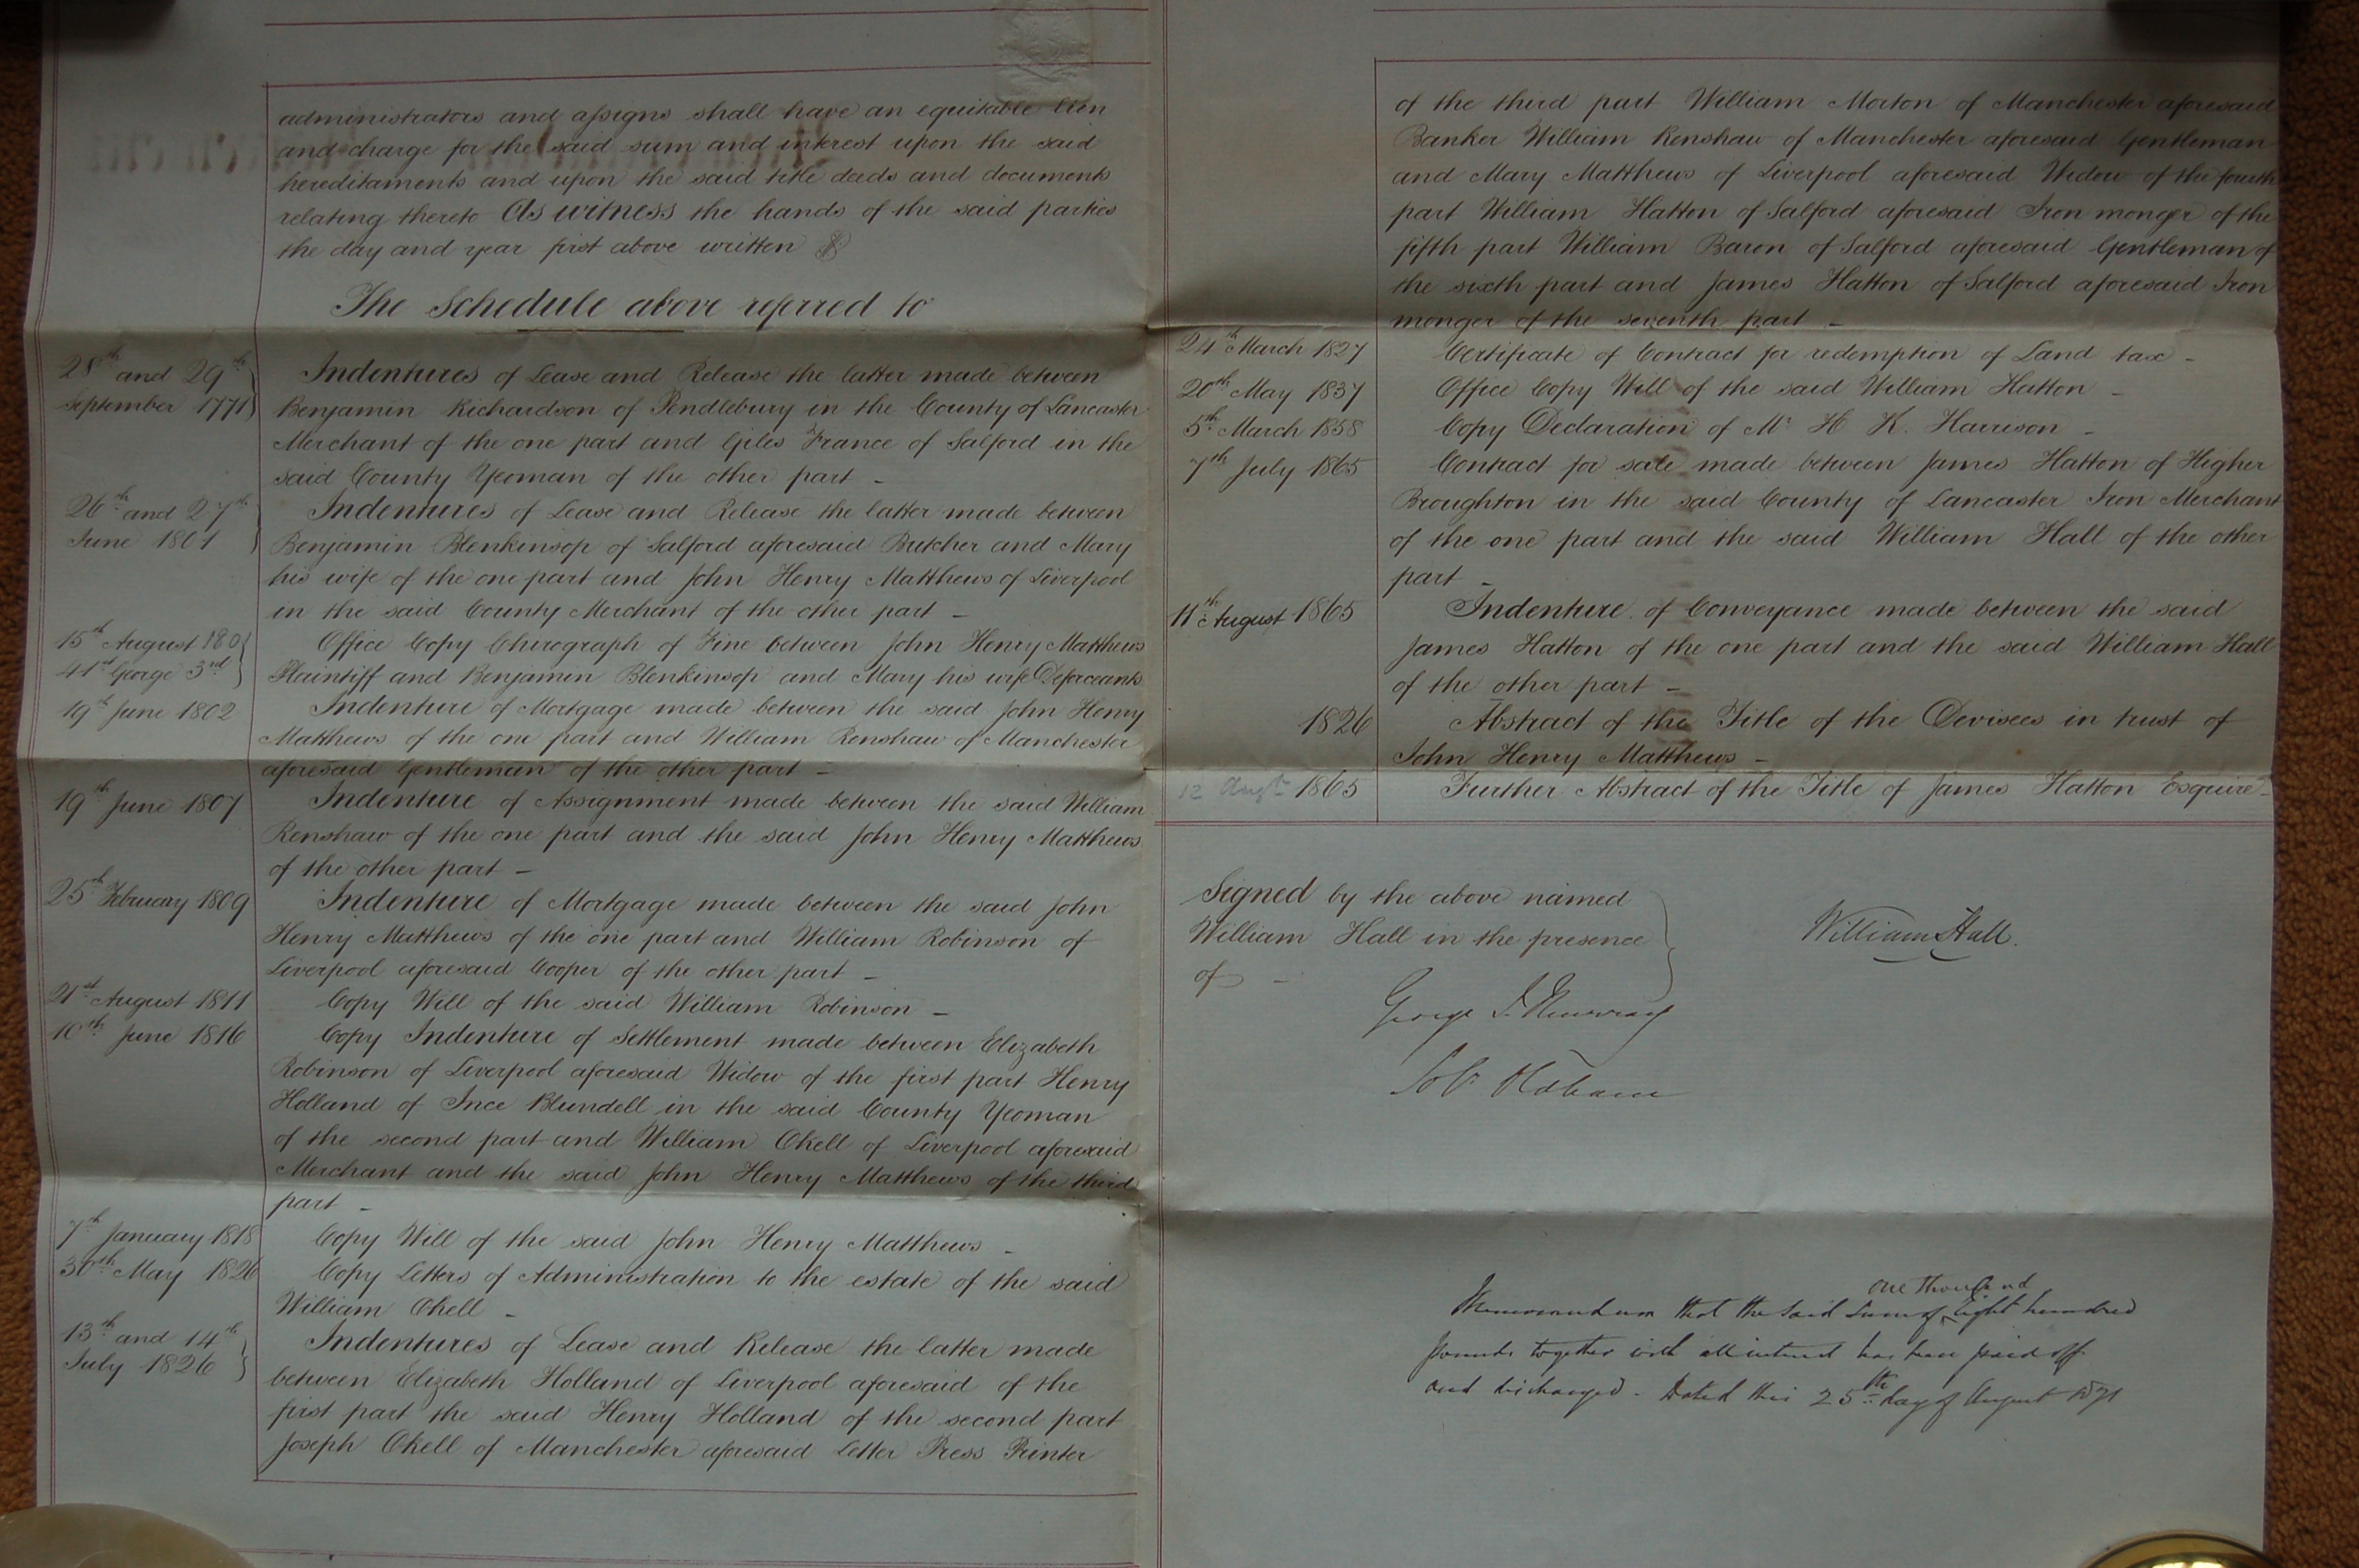 administrators and assigns shall have an equitable lien
and charge for the said sum and interest upon the said
hereditaments and upon the said title deeds and documents
relating thereto As witness the hands of the said parties
the day and year first above written
The Schedule above referred to
28th and 29th September 1771
Indentures of Lease and Release the latter made between
Benjamin Richardson of Pendlebury in the County of Lancaster
Merchant of the one part and Giles France of Salford in the
said County Yeoman of the other part –
26th and 27th June 1801
Indentures of Lease and Release the latter made between
Benjamin Blenkinsop of Salford aforesaid Butcher and Mary
his wife of the one part and John Henry Matthews of Liverpool
in the said County Merchant of the other part –
15th August 1801
41st George 3rd
Office Copy Chirograph of Fine between John Henry Matthews
Plaintiff and Benjamin Blenkinsop and Mary his wife Deforceants
19th June 1802
Indenture of Mortgage made between the said John Henry
Matthews of the one part and William Renshaw of Manchester
aforesaid Gentleman of the other part –
19th June 1807
Indenture of Assignment made between the said William
Renshaw of the one part and the said John Henry Matthews
of the other part –
25th February 1809
Indenture of Mortgage made between the said John
Henry Matthews of the one part and William Robinson of
Liverpool aforesaid Cooper of the other part –
21st August 1811
Copy Will of the said William Robinson –
10th June 1816
Copy Indenture of Settlement made between Elizabeth
Robinson of Liverpool aforesaid Widow of the first part Henry
Holland of Ince Blundell in the said County Yeoman
of the second part and William Okell of Liverpool aforesaid
Merchant and the said John Henry Matthews of the third
part –
7th January 1818
Copy Will of the said John Henry Matthews –
30th May 1826
Copy Letters of Administration to the estate of the said
William Okell –
13th and 14th July 1826
Indentures of Lease and Release the latter made
between Elizabeth Holland of Liverpool aforesaid of the
first part the said Henry Holland of the second part
Joseph Okell of Manchester aforesaid Letter Press Printer
of the third part William Morton of Manchester aforesaid
Banker William Renshaw of Manchester aforesaid Gentleman
and Mary Matthews of Liverpool aforesaid Widow of the fourth
part William Hatton of Salford aforesaid Iron monger of the
fifth part William Baron of Salford aforesaid Gentleman of
the sixth part and James Hatton of Salford aforesaid Iron
monger of the seventh part –
24th March 1827
Certificate of Contract for redemption of Land tax –
20th May 1837
Office Copy Will of the said William Hatton –
5th March 1858
Copy Declaration of Mr H K. Harrison –
7th July 1865
Contract for sale made between James Hatton of Higher
Broughton in the said County of Lancaster Iron Merchant
of the one part and the said William Hall of the other
part –
11th August 1865
Indenture of Conveyance made between the said
James Hatton of the one part and the said William Hall
of the other part –
1826
Abstract of the Title of the Devisees in trust of
John Henry Matthews –
12 Augt 1865
Further Abstract of the Title of James Hatton Esquire –
Signed by the above named
William Hall in the presence
of –
William Hall.
George
Memorandum that the said sum of one thousand Eight hundred
pounds together with all interest has been paid off
and discharged. Dated this 25th day of August 1871